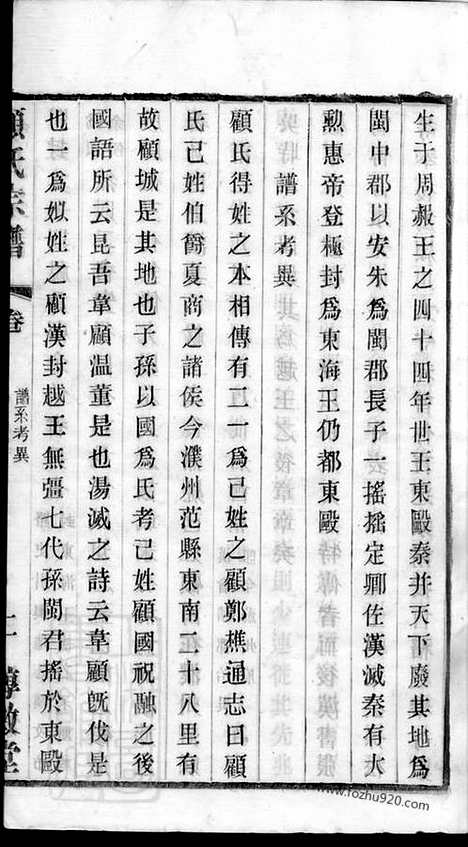 生于周赧王之四十四年世王東甌秦并天下廢其地爲
閩中郡以安朱爲閩郡長子一搖搖定卿佐漢滅秦有大
勲惠帝登極封爲東海王仍都東甌
譜系考異
顧氏得姓之本相傳有二一爲己姓之顧鄭樵通志曰顧
氏己姓伯爵夏商之諸侯今濮州范縣東南二十八里有
故顧城是其地也子孫以國爲氏考己姓顧國祝融之後
國語所云昆吾韋顧温董是也湯滅之詩云韋顧旣伐是
也一爲姒姓之顧漢封越王無彊七代孫閩君搖於東甌
顧氏宗譜
卷
譜系考異
www.fozhu920.com